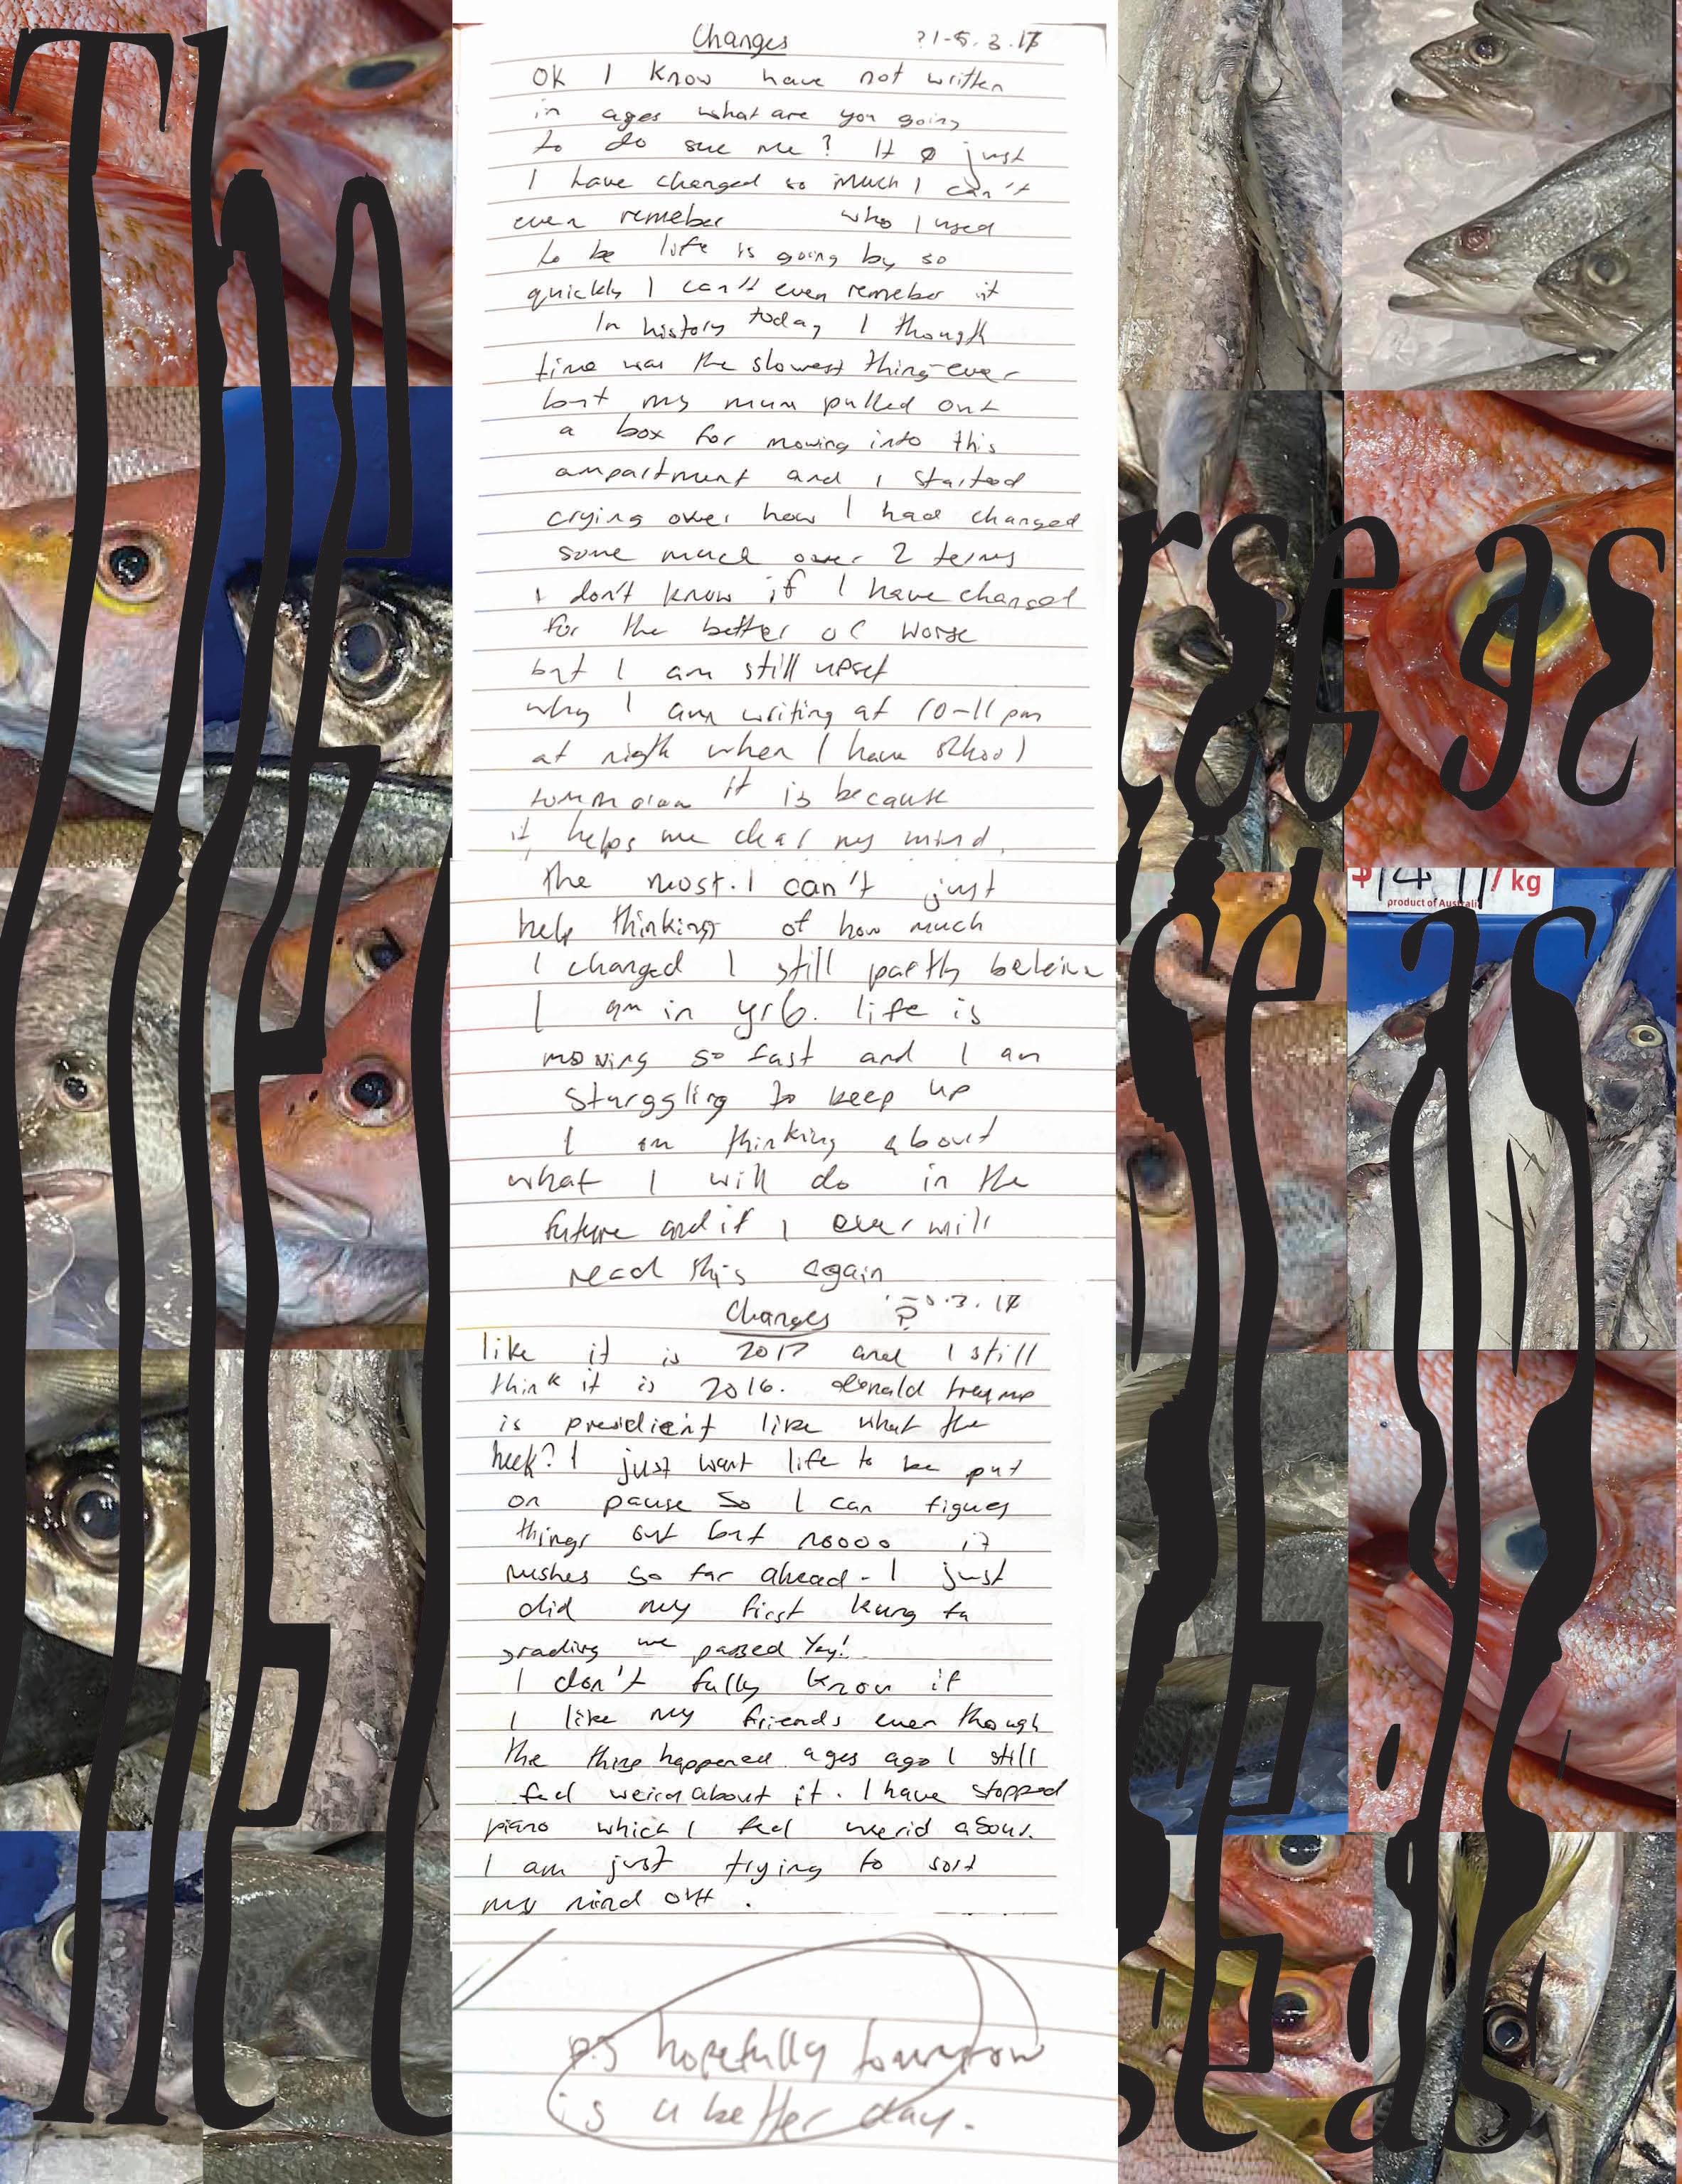 Changes ?1-5.3.17
OK I know have not written
in ages what are you going
to do sue me? It just
I have changed so much I can't
even remeber who I used
to be life is going by so
quickly I can't even remeber it
In history today I though
time was the slowest thing ever
but my mum pulled out
a box for moving into this
ampartment and I started
crying over how I had changed
some much over 2 terms
I don't know if I have changed
for the better or worse
but I am still upset
why I am writing at 10-11 pm
at nigth when I have school
it is because
it helps me clear my mind.
the most. I can't just
help thinking of how much
I changed I still partly beleive
I am in yr6. life is
moving so fast and I am
sturggling to keep up
I am thinking about
what I will do in the
future and if I ever will
read this again
Changes 3.17
like it is 2017 and I still
think it is 2016. donald treump
is presidient like what the
heck? I just want life to be put
on pause so I can figuer
things out but noooo it
rushes so far ahead - I just
did my first kung fu
grading we passed Yay!
I don't fully know if
I like my friends even though
the thing happened ages ago I still
feel weird about it. I have stopped
piano which I feel werid about.
I am just trying to sort
my mind out.
ps hopefully tomorrow
is a better day.
The
rse as
$14 /kg
product of Australi
se as